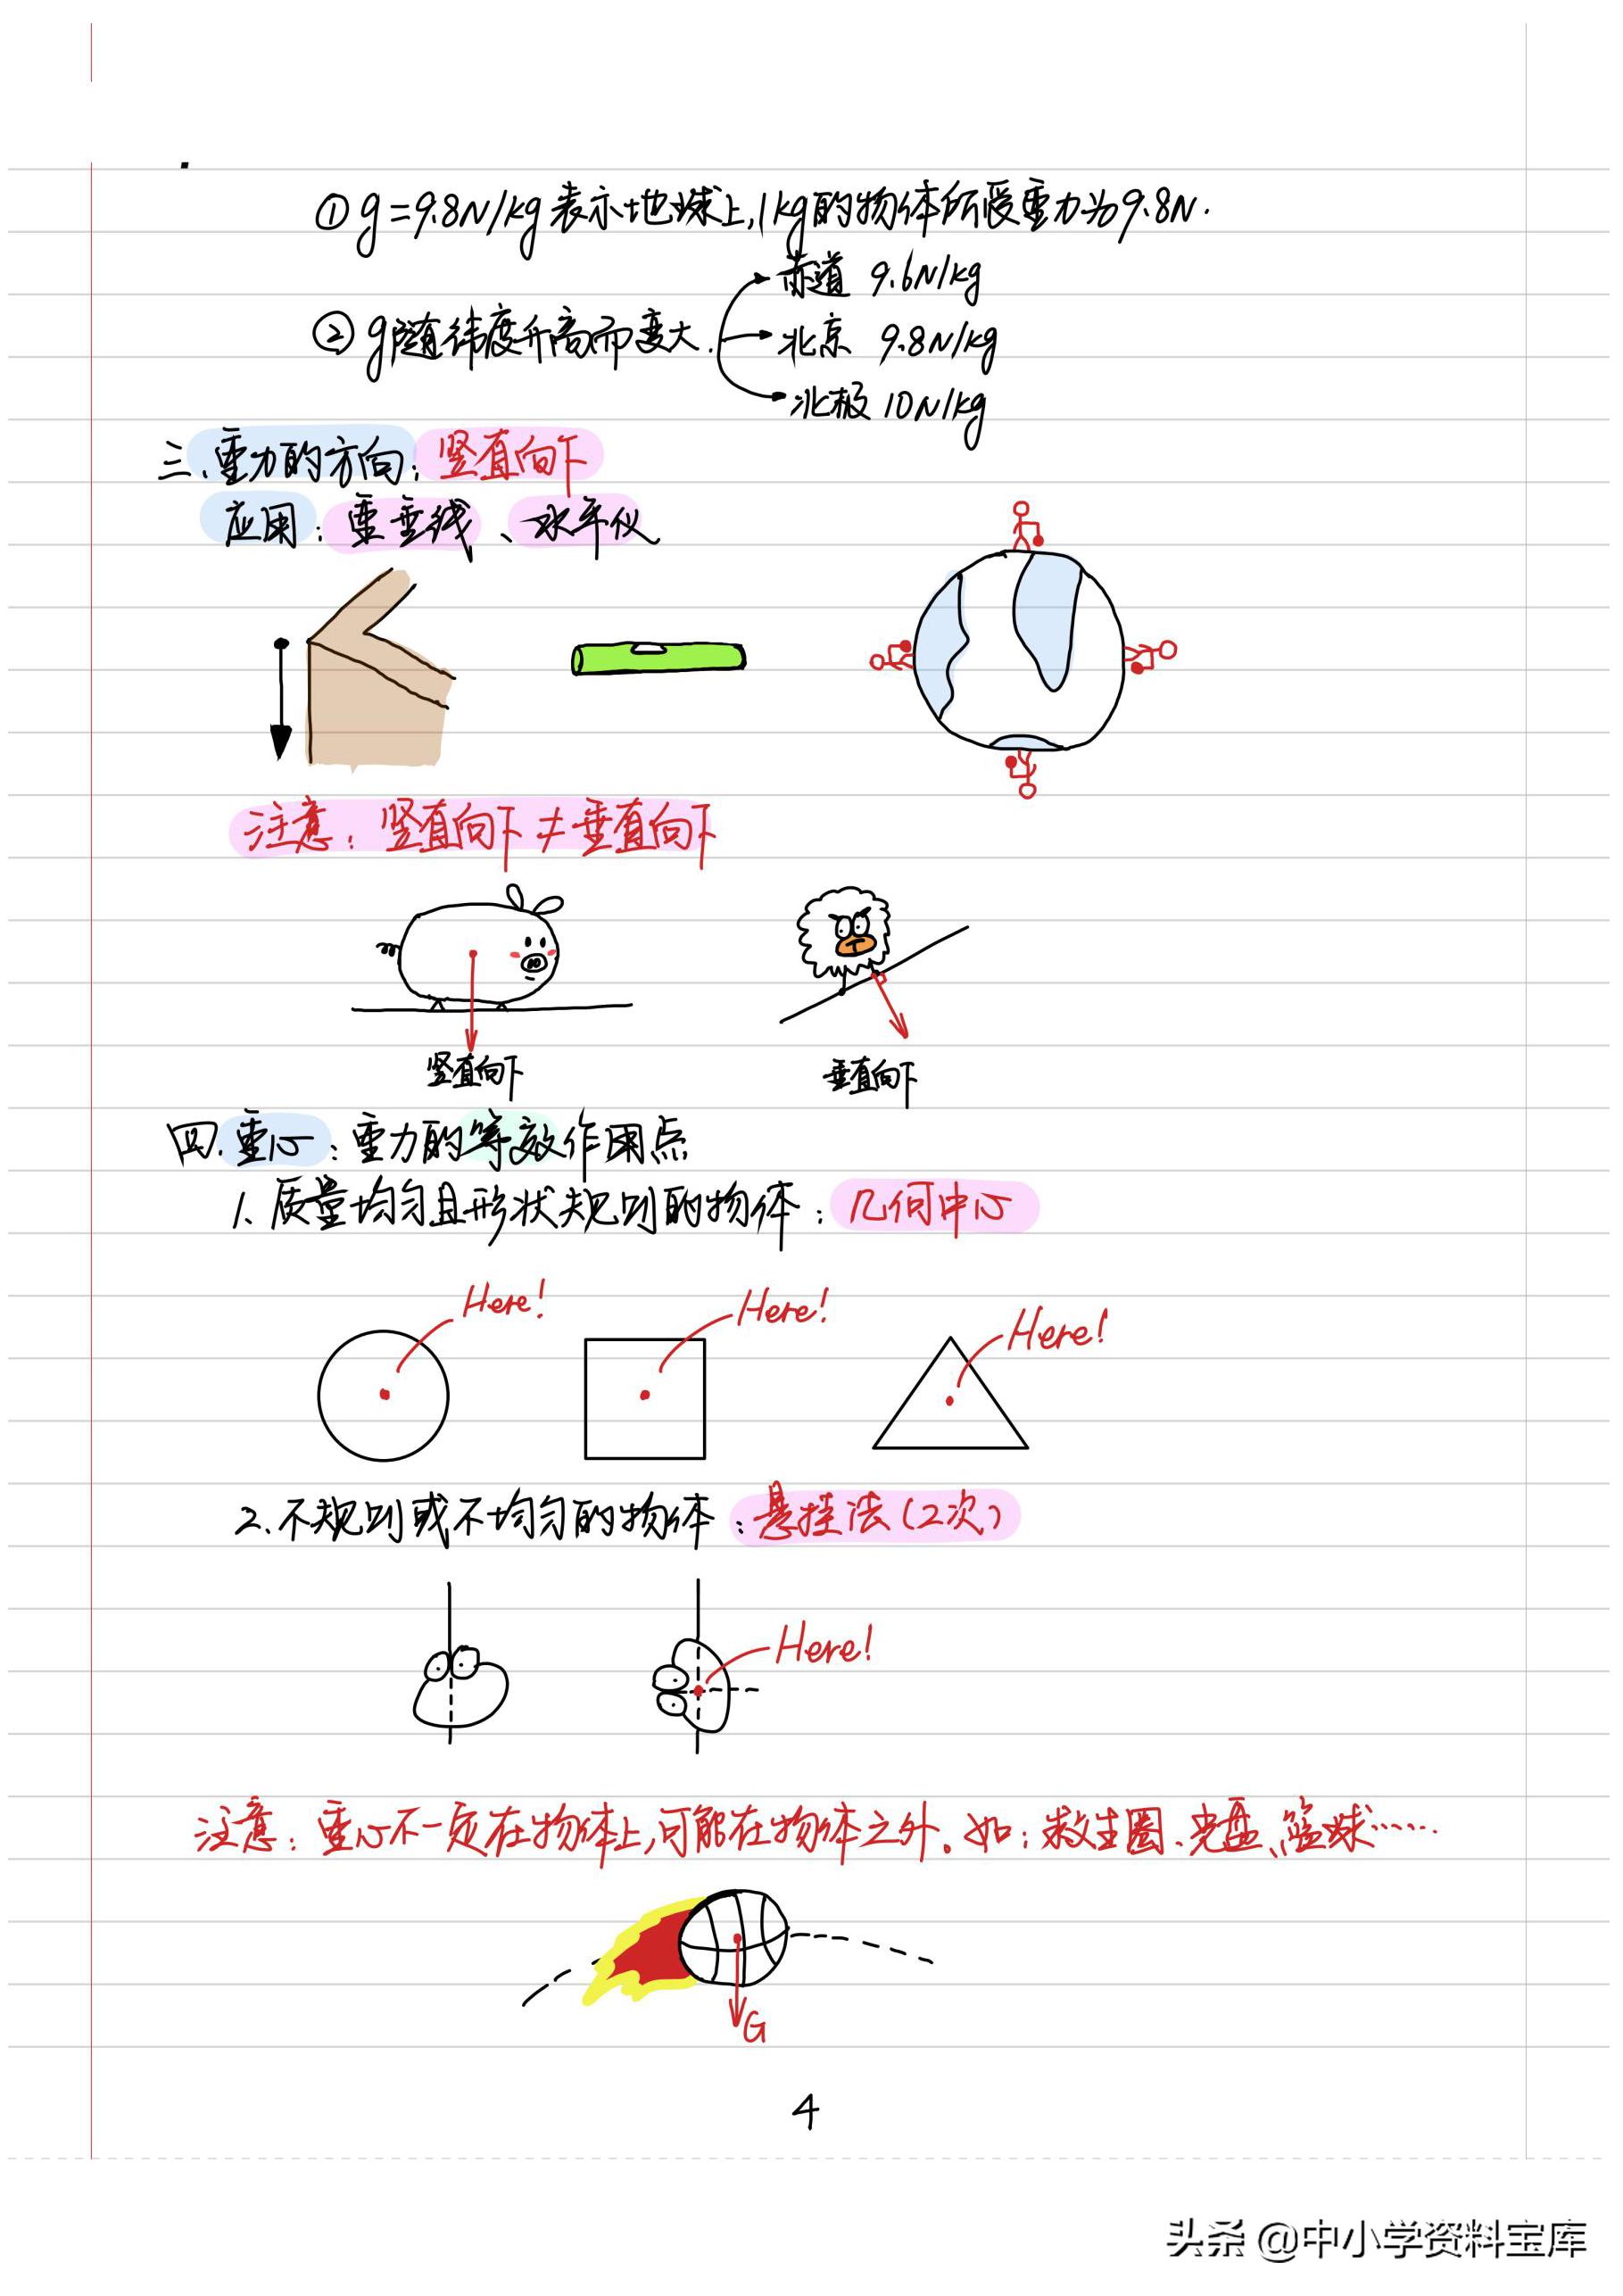 ① g=9.8N/kg 表示地球上,1kg的物体所受重力为9.8N.
赤道 9.6N/kg
② g随纬度升高而变大.
北京 9.8N/kg
北极 10N/kg
三.重力的方向:竖直向下
应用:重垂线、水平仪
注意:竖直向下≠垂直向下
竖直向下
垂直向下
四.重心:重力的等效作用点
1、质量均匀且形状规则的物体:几何中心
Here!
Here!
Here!
2、不规则或不均匀的物体:悬挂法(2次)
Here!
注意:重心不一定在物体上,可能在物体之外。如:救生圈、光盘、篮球……
G
4
头条 @中小学资料宝库